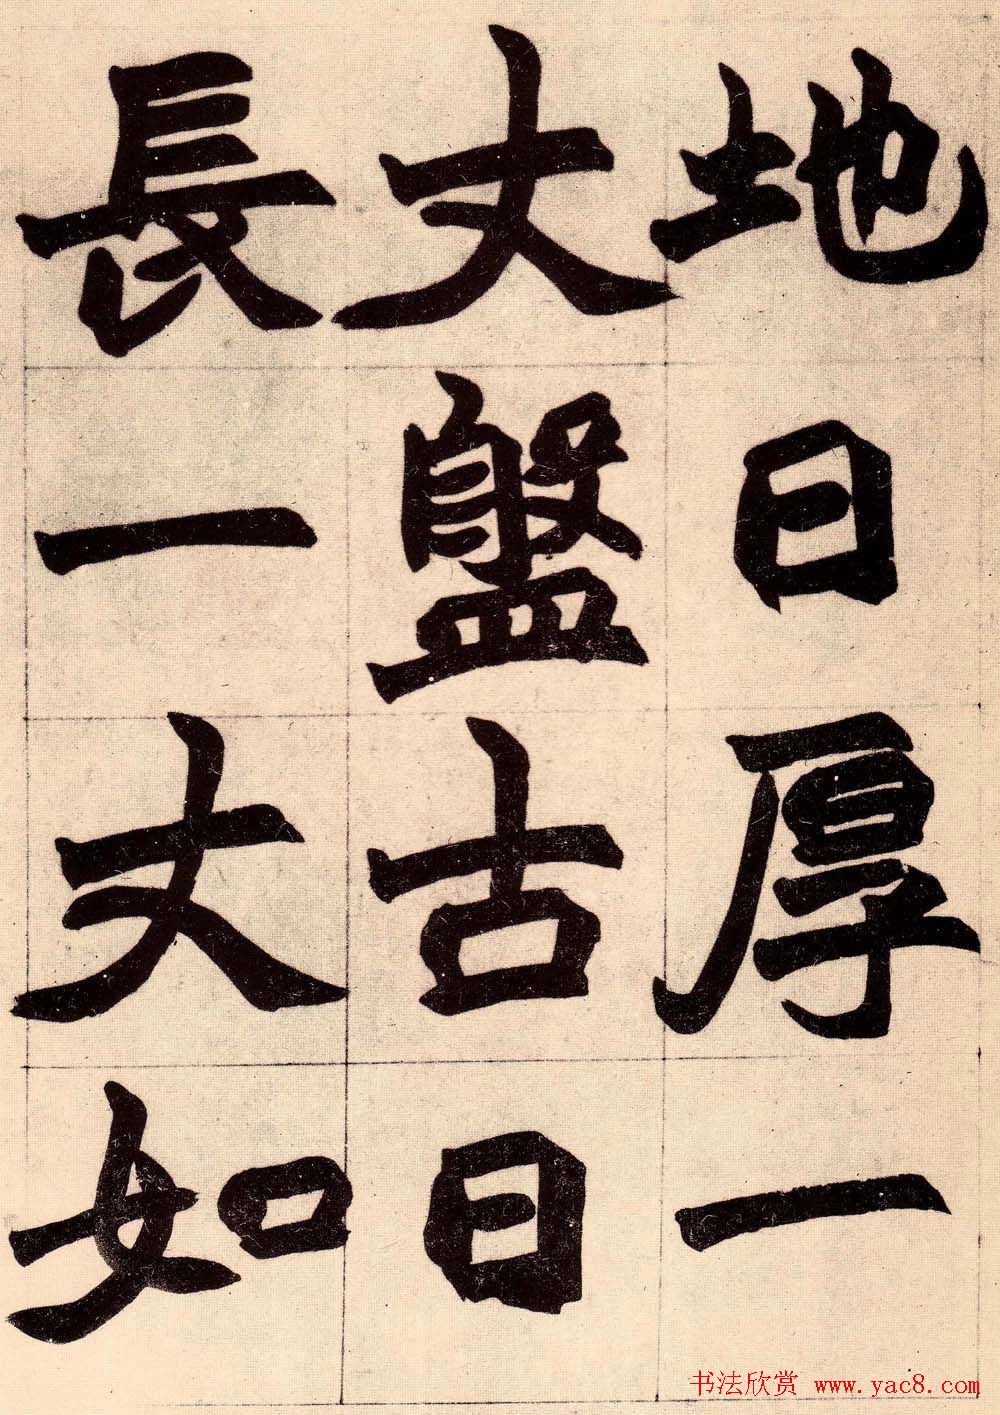 地日厚一
丈盤古日
長一丈如
书法欣赏 www.yac8.com